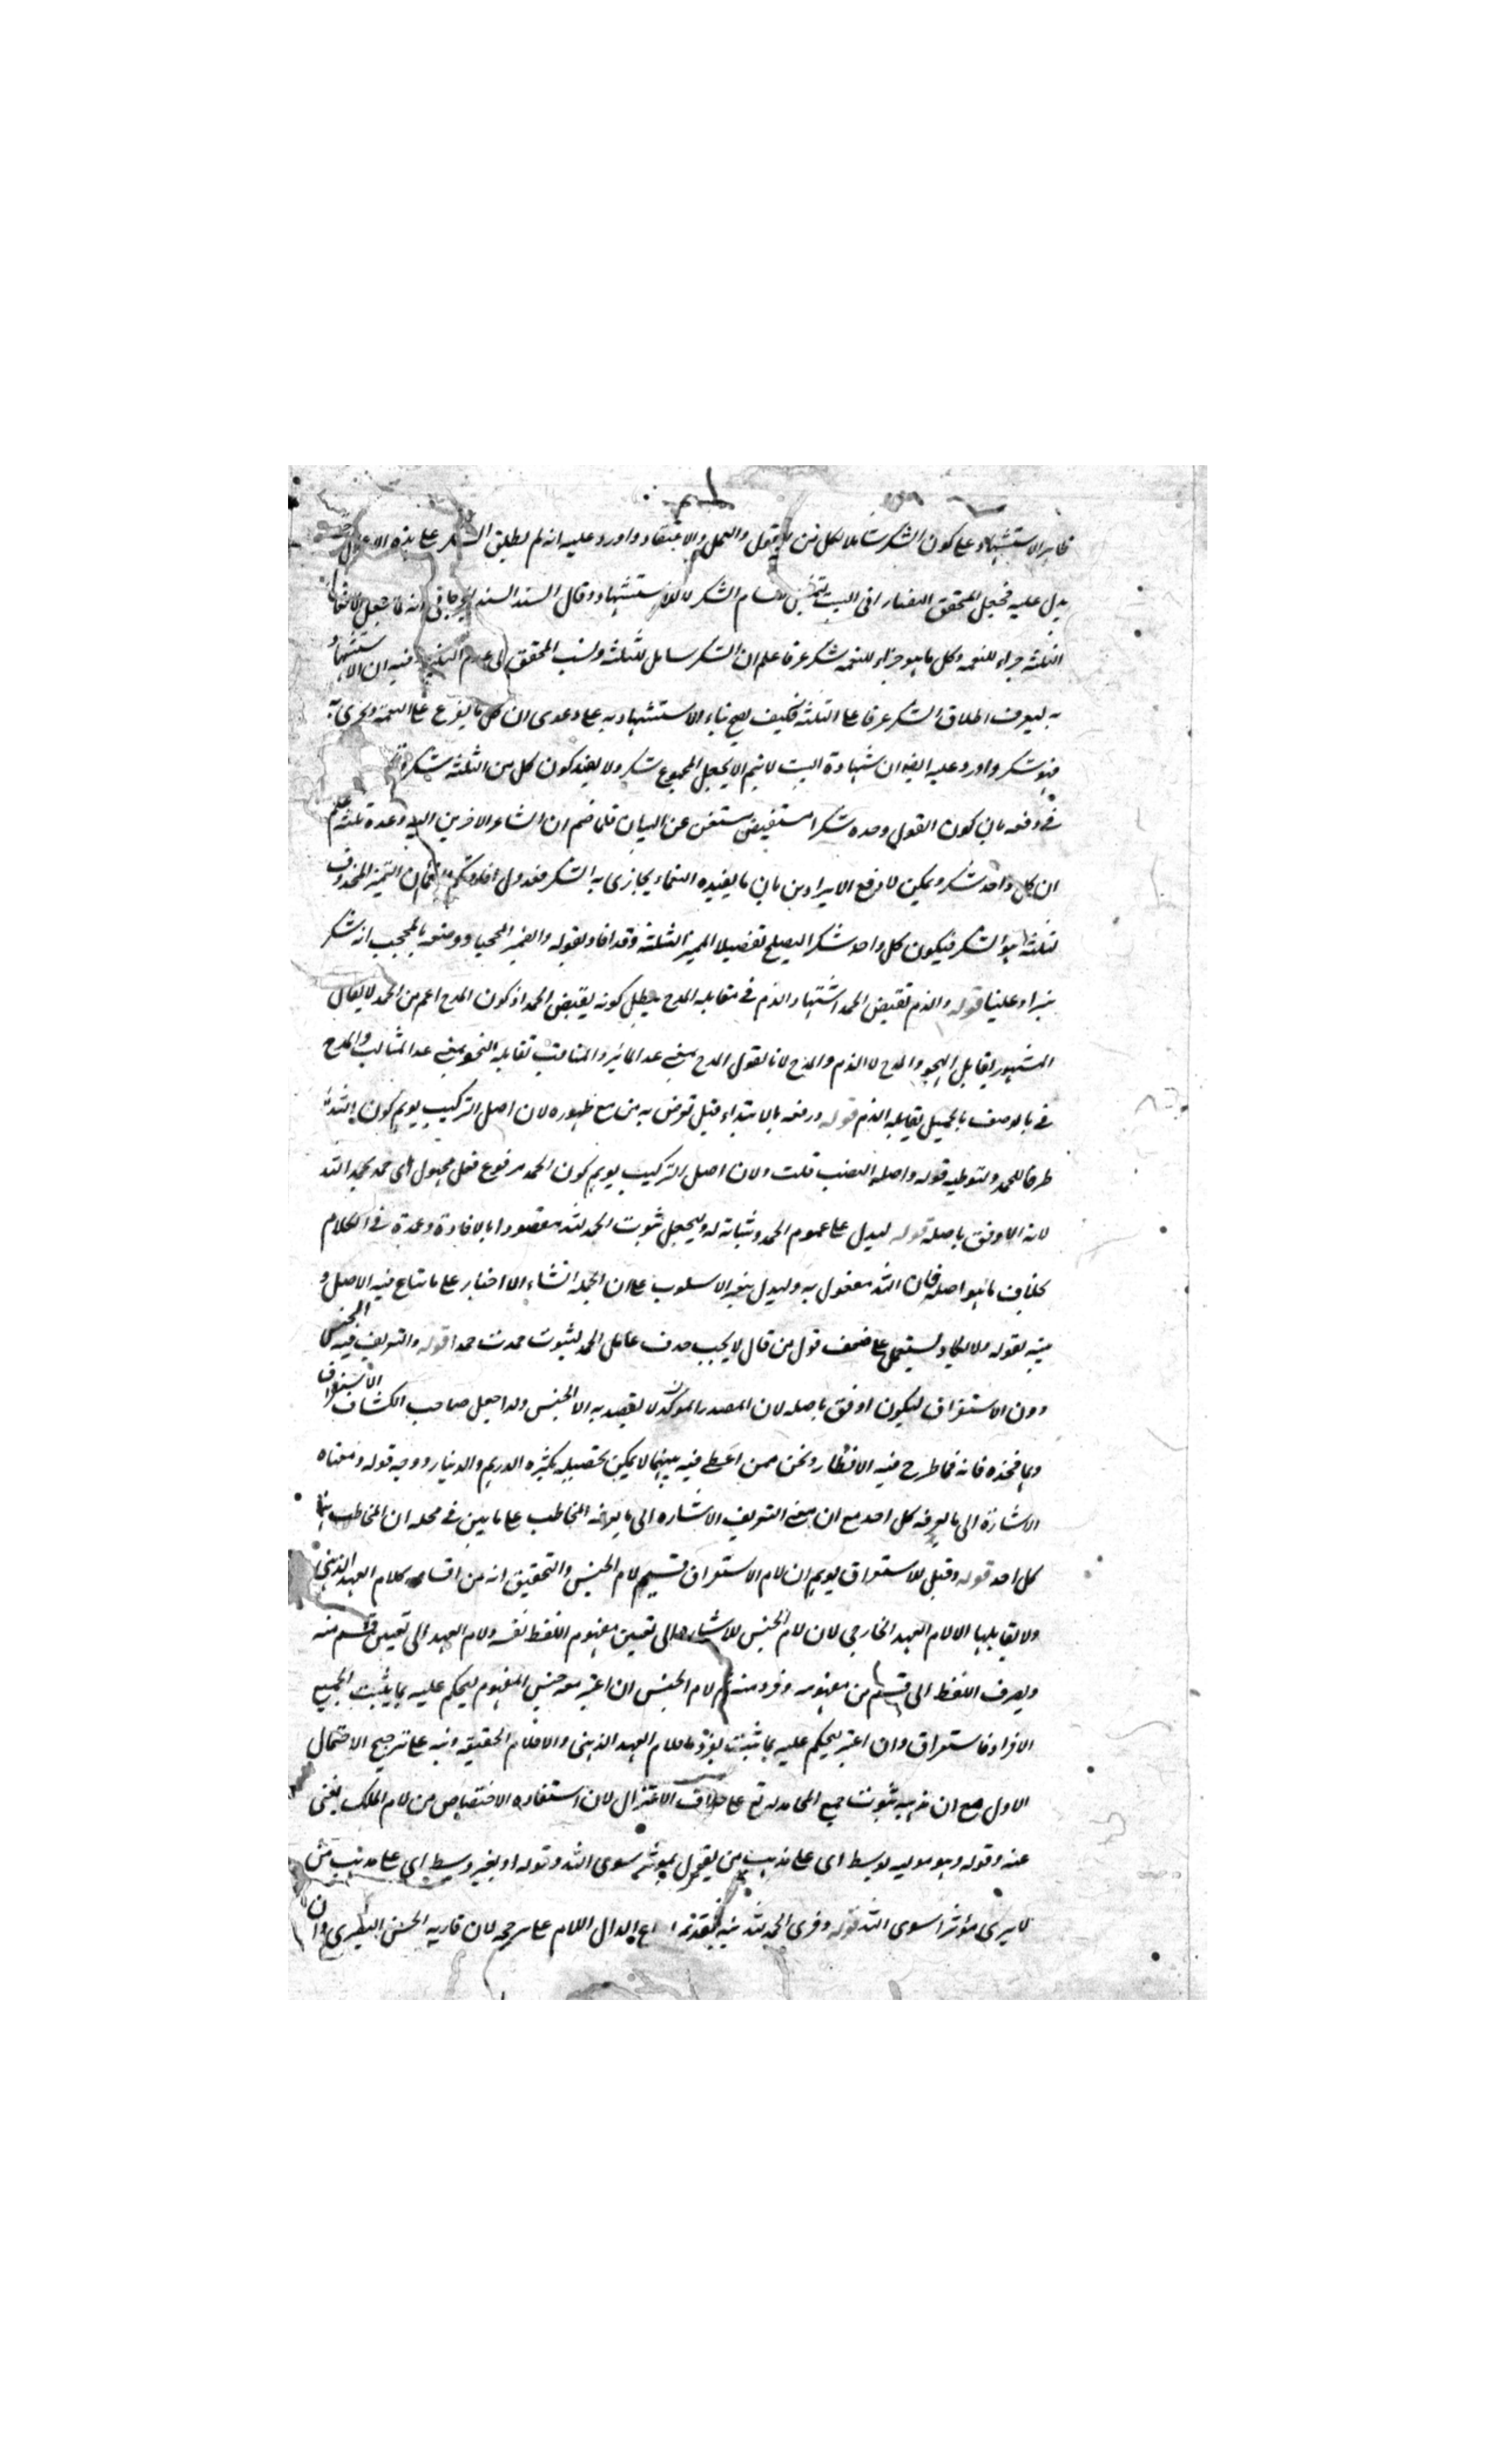 ظاهر الاستشهاد على كون الشكر شاملا لكل من القول والعمل والاعتقاد واورد عليه انه لم يطلق الشكر على هذه الا
يدل عليه فجعل المحقق التفتازاني البيت لاقسام الشكر لا للاستشهاد وقال السيد السند الجرجاني انه لما جعل
الثلثة جزاء للنعمة وكل ما هو جزاء للنعمة شكر عرفا علم ان الشكر شامل للثلثة ونسب المحقق الى عدم فيه ان الاستشهاد
به ليعرف اطلاق الشكر عرفا على الثلثة فكيف يصح بناء الاستشهاد به على دعوى ان كل ما يقع على النعمة
فهو شكر واورد عليه ايضا ان شهادة البيت لا يتم الا بجعل المجموع شكر ولا يفيد كون كل من الثلثة شكرا
في دفعه بان كون القول وحده شكرا مستفيض مستغن عن البيان فلما ضم ان الشاعر الاخرين اليه وعده ثلثة علم
ان كل واحد شكر ويمكن لا دفع الايرادين بان ما يفيده النعماء يجازى به الشكر التميز المحذوف
لثلثة هو الشكر فيكون كل واحد شكرا ليصلح تفصيلا المميز الثلثة وقد افاد بقوله والضمير المحجبا ووصفه بالمحجب انه شكر
قوله والذم نقيض الحمد اشتهار الذم في مقابلة المدح يبطل كونه نقيض الحمد اذ كون المدح اعم من الحمد لا يقال
المشهور تقابل الهجو والمدح لا الذم والمدح لانا نقول المدح بمعنى عد المآثر والمناقب تقابله الهجو بمعنى عد المثالب والمدح
في بالوصف بالجميل تقابله الذم قوله ورفعه بالابتداء قيل تعرض به من مع ظهوره لان اصل التركيب يوهم كون
ظرفا للحمد ولتوطية قوله واصله النصب قلت ولان اصل التركيب يوهم كون الحمد مرفوع فعل مجهول اي حمد الحمد لله
لانه الاوفق باصله قوله ليدل على عموم الحمد وثباته له وليجعل ثبوت الحمد لله مقصودا بالافادة وعمدة في الكلام
بخلاف ما هو اصله فان الله مفعول به وليدل بتغير الاسلوب على ان الجملة انشاء لا اخبار على ما شاع فيه الاصل و
نبه بقوله ولا يكاد يستعمل على ضعف قول من قال لا يجب حذف عامل الحمد لثبوت حمدت حمدا قوله والتعريف فيه للجنس
دون الاستغراق ليكون اوفق باصله لان المصدر المؤكد لا يقصد به الا الجنس ولذا جعل صاحب الكشاف الاستغراق
وهما فخذه فانه مما طرح فيه الانظار ونحن ممن اعطى فيه ما لا يمكن تحصيله بكثرة الدرهم والدينار ووجه قوله ومعناه
الاشارة الى ما يعرفه كل احد مع ان معنى التعريف الاشارة الى ما يعرفه المخاطب على ما بين في محله ان المخاطب
كل احد قوله وقيل للاستغراق يوهم ان لام الاستغراق قسيم لام الجنس والتحقيق انه من اقسامه كلام العهد الذهني
ولا يقابلها الا لام العهد الخارجي لان لام الجنس للاشارة الى تعيين مفهوم اللفظ نفسه ولام العهد الى تعيين قسم منه
ويصرف اللفظ الى قسم من مفهومه وفرد منه ثم لام الجنس ان اعتبر معه جنس المفهوم ليحكم عليه بما يثبت لجميع
الافراد فاستغراق وان اعتبر ليحكم عليه بما ثبت لفرد ما فلام العهد الذهني والا فلام الحقيقة ونبه على ترجيح الاحتمال
الاول مع ان مذهبه ثبوت جميع المحامد له تع على خلاف الاعتزال لان استفادة الاختصاص من لام الملك يغني
عنه وقوله وهو موليه بوسط اي على مذهب من يقول بمؤثر سوى الله وقوله او بغير وسط اي على مذهب من
لا يرى مؤثرا سوى الله قوله وقرئ الحمد لله الدال اللام على لان قاريه الحسن البصري وان